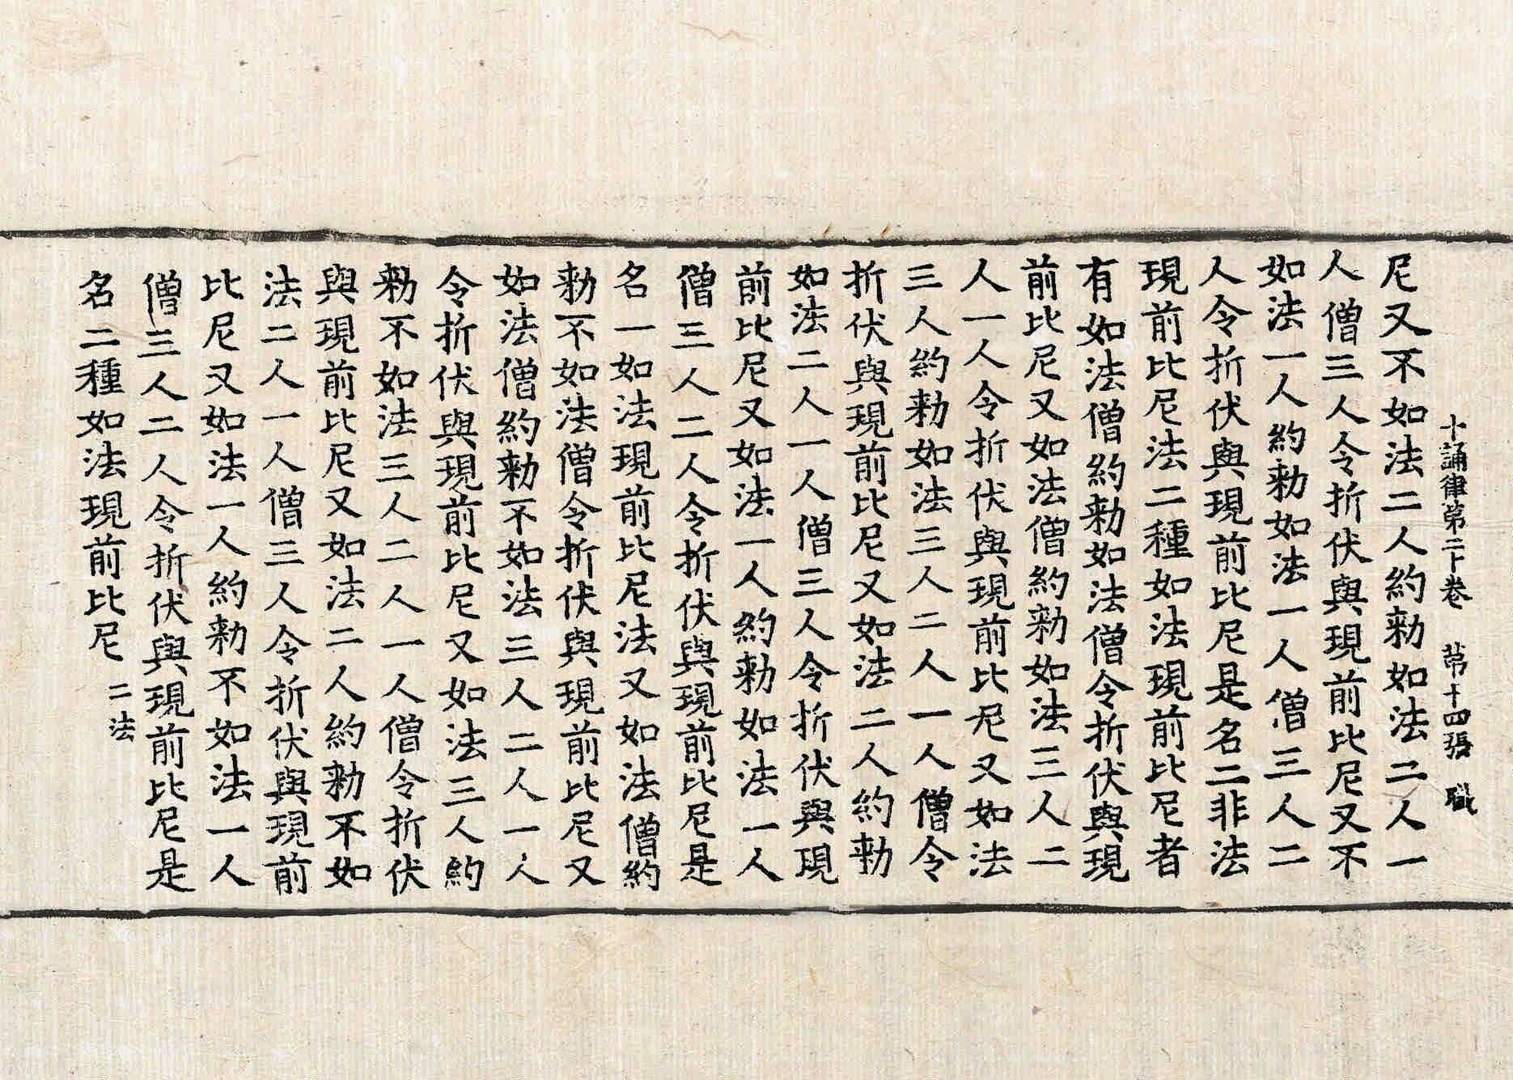 十誦律第二十卷　第十四張　職
尼又不如法二人約勑如法二人一
人僧三人令折伏與現前比尼又不
如法一人約勑如法一人僧三人二
人令折伏與現前比尼是名二非法
現前比尼法二種如法現前比尼者
有如法僧約勑如法僧令折伏與現
前比尼又如法僧約勑如法三人二
人一人令折伏與現前比尼又如法
三人約勑如法三人二人一人僧令
折伏與現前比尼又如法二人約勑
如法二人一人僧三人令折伏與現
前比尼又如法一人約勑如法一人
僧三人二人令折伏與現前比尼是
名一如法現前比尼法又如法僧約
勑不如法僧令折伏與現前比尼又
如法僧約勑不如法三人二人一人
令折伏與現前比尼又如法三人約
勑不如法三人二人一人僧令折伏
與現前比尼又如法二人約勑不如
法二人一人僧三人令折伏與現前
比尼又如法一人約勑不如法一人
僧三人二人令折伏與現前比尼是
名二種如法現前比尼　二法